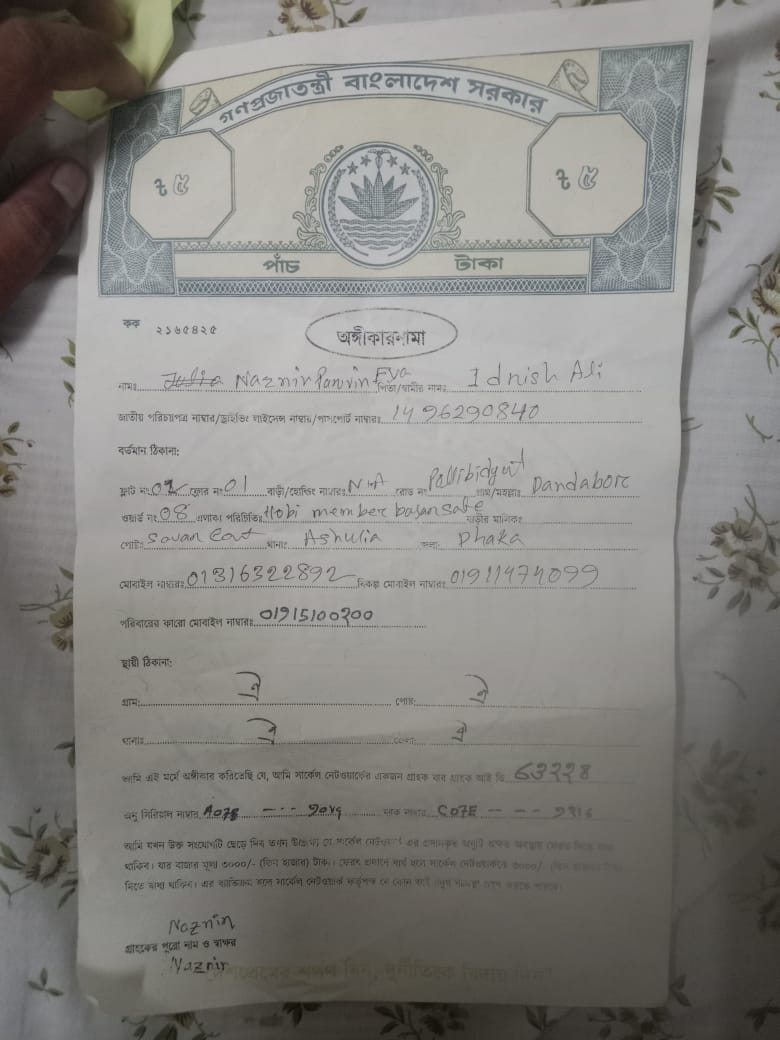 গণপ্রজাতন্ত্রী বাংলাদেশ সরকার
৳ ৫ ৳ ৫
পাঁচ টাকা
কক ২১৬৫৪২৫
অঙ্গীকারনামা
নামঃ Julia Naznin Parvin Eva পিতা/স্বামীর নামঃ Idnish Ali
জাতীয় পরিচয়পত্র নাম্বার/ড্রাইভিং লাইসেন্স নাম্বার/পাসপোর্ট নাম্বারঃ 1496290840
বর্তমান ঠিকানা:
ফ্লাট নং 02 ফ্লোর নং 01 বাড়ী/হোল্ডিং নাম্বারঃ N-A রোড নং Pallibidyut গ্রাম/মহল্লাঃ Dandabor
ওয়ার্ড নং 08 এলাকা পরিচিতিঃ Hobi member বাড়ীর মালিকঃ
পোষ্টঃ Savar Cant থানাঃ Ashulia জেলাঃ Dhaka
মোবাইল নাম্বারঃ 01316322892 বিকল্প মোবাইল নাম্বারঃ 01911474099
পরিবারের কারো মোবাইল নাম্বারঃ 01915100200
স্থায়ী ঠিকানা:
গ্রাম: ঐ পোষ্ট: ঐ
থানাঃ ঐ জেলা: ঐ
আমি এই মর্মে অঙ্গীকার করিতেছি যে, আমি সার্কেল নেটওয়ার্কের একজন গ্রাহক যার গ্রাহক আই ডি 63228
অনু সিরিয়াল নাম্বার ম্যাক নাম্বার
আমি যখন উক্ত সংযোগটি ছেড়ে দিব তখন
থাকিব। যার বাজার মূল্য ৩০০০/- (তিন হাজার) টাকা। ফেরৎ প্রদানে ব্যর্থ হলে সার্কেল নেটওয়ার্ককে ৩০০০/-
দিতে বাধ্য থাকিব। এর ব্যতিক্রম হলে সার্কেল নেটওয়ার্ক কর্তৃপক্ষ
Naznin
গ্রাহকের পুরো নাম ও স্বাক্ষর
Naznin
শপথ নিন, দুর্নীতিকে বিদায় দিন"